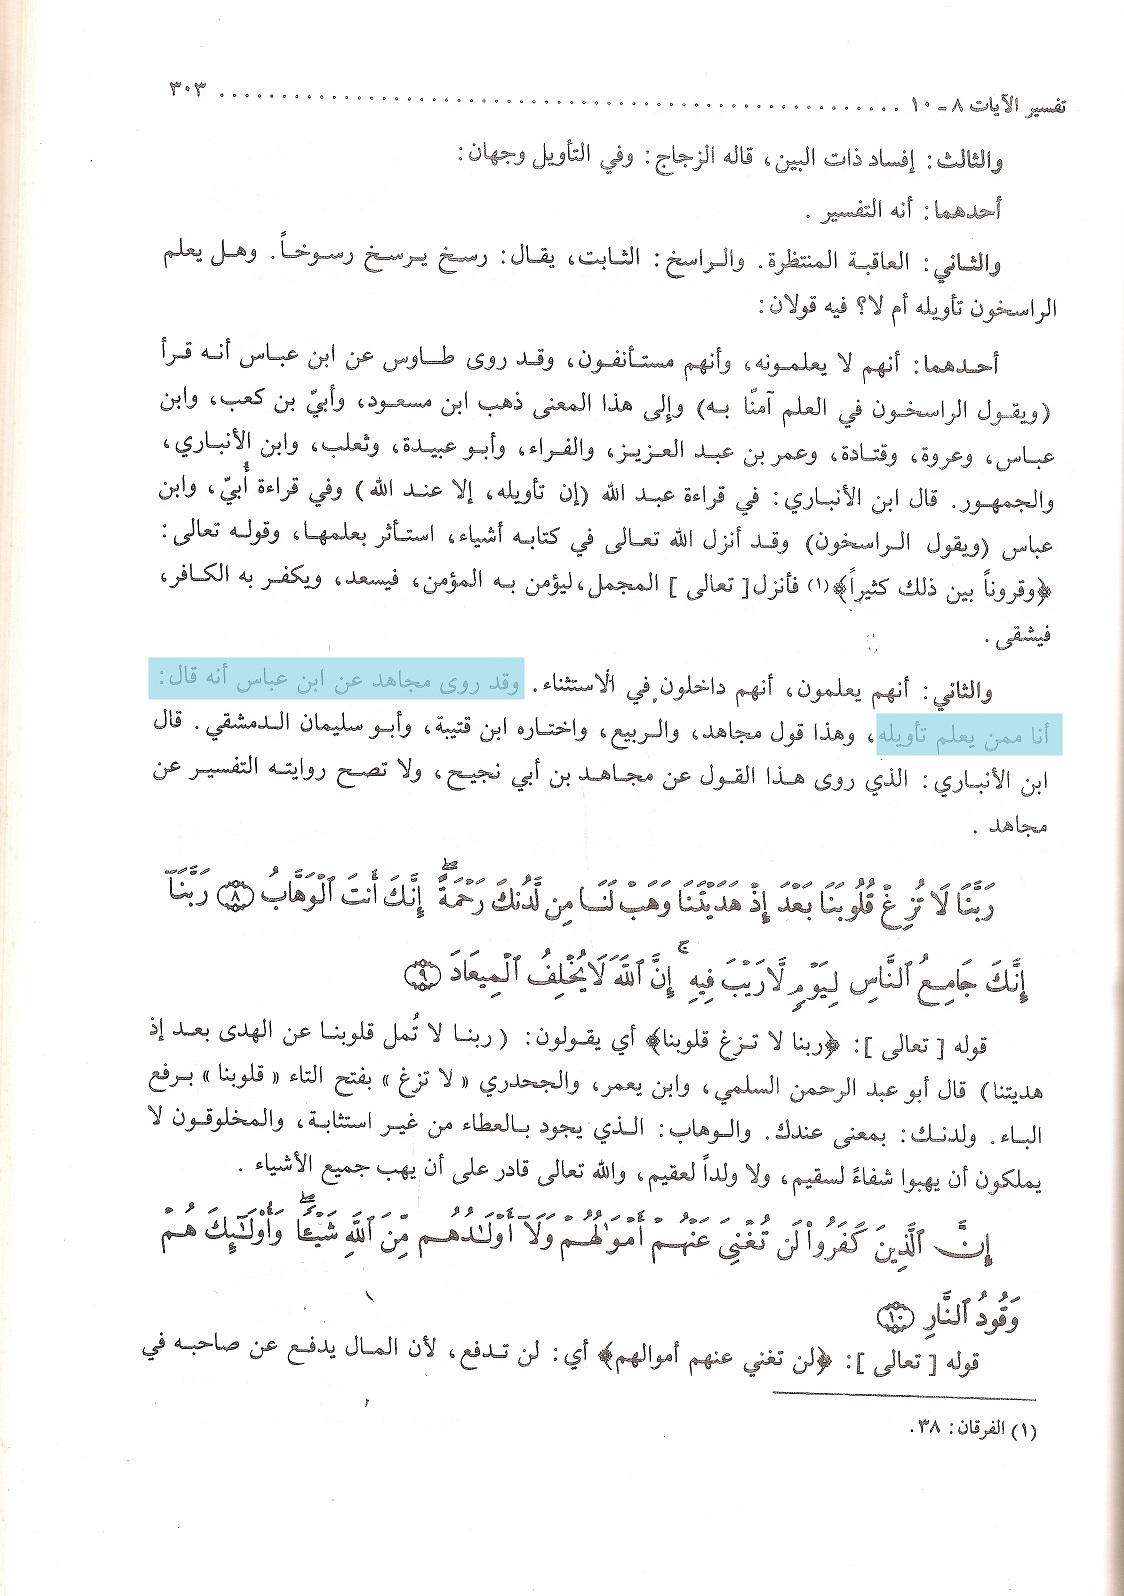 تفسير الآيات ٨ - ١٠ ........................................................ ٣٠٣
والثالث: إفساد ذات البين، قاله الزجاج: وفي التأويل وجهان:
أحدهما: أنه التفسير.
والثاني: العاقبة المنتظرة. والراسخ: الثابت، يقال: رسخ يرسخ رسوخاً. وهل يعلم
الراسخون تأويله أم لا؟ فيه قولان:
أحدهما: أنهم لا يعلمونه، وأنهم مستأنفون، وقد روى طاوس عن ابن عباس أنه قرأ
(ويقول الراسخون في العلم آمنّا به) وإلى هذا المعنى ذهب ابن مسعود، وأبيّ بن كعب، وابن
عباس، وعروة، وقتادة، وعمر بن عبد العزيز، والفراء، وأبو عبيدة، وثعلب، وابن الأنباري،
والجمهور. قال ابن الأنباري: في قراءة عبد الله (إن تأويله، إلا عند الله) وفي قراءة أُبيّ، وابن
عباس (ويقول الراسخون) وقد أنزل الله تعالى في كتابه أشياء، استأثر بعلمها، وقوله تعالى:
﴿وقروناً بين ذلك كثيراً﴾(١) فأنزل[ تعالى ] المجمل، ليؤمن به المؤمن، فيسعد، ويكفر به الكافر،
فيشقى.
والثاني: أنهم يعلمون، أنهم داخلون في الاستثناء. وقد روى مجاهد عن ابن عباس أنه قال:
أنا ممن يعلم تأويله، وهذا قول مجاهد، والربيع، واختاره ابن قتيبة، وأبو سليمان الدمشقي. قال
ابن الأنباري: الذي روى هذا القول عن مجاهد بن أبي نجيح، ولا تصح روايته التفسير عن
مجاهد.
رَبَّنَا لَا تُزِغْ قُلُوبَنَا بَعْدَ إِذْ هَدَيْتَنَا وَهَبْ لَنَا مِن لَّدُنكَ رَحْمَةً ۖ إِنَّكَ أَنتَ ٱلْوَهَّابُ ﴿٨﴾ رَبَّنَآ
إِنَّكَ جَامِعُ ٱلنَّاسِ لِيَوْمٍ لَّا رَيْبَ فِيهِ ۚ إِنَّ ٱللَّهَ لَا يُخْلِفُ ٱلْمِيعَادَ ﴿٩﴾
قوله [ تعالى ]: ﴿ربنا لا تزغ قلوبنا﴾ أي يقولون: ( ربنا لا تُمل قلوبنا عن الهدى بعد إذ
هديتنا) قال أبو عبد الرحمن السلمي، وابن يعمر، والجحدري « لا تزغ » بفتح التاء « قلوبنا » برفع
الباء. ولدنك: بمعنى عندك. والوهاب: الذي يجود بالعطاء من غير استثابة، والمخلوقون لا
يملكون أن يهبوا شفاءً لسقيم، ولا ولداً لعقيم، والله تعالى قادر على أن يهب جميع الأشياء.
إِنَّ ٱلَّذِينَ كَفَرُوا۟ لَن تُغْنِىَ عَنْهُمْ أَمْوَٰلُهُمْ وَلَآ أَوْلَـٰدُهُم مِّنَ ٱللَّهِ شَيْـًٔا ۖ وَأُو۟لَـٰٓئِكَ هُمْ
وَقُودُ ٱلنَّارِ ﴿١٠﴾
قوله [ تعالى ]: ﴿لن تغني عنهم أموالهم﴾ أي: لن تدفع، لأن المال يدفع عن صاحبه في
(١) الفرقان: ٣٨.